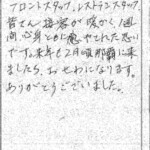 フロントスタッフ、レストランスタッフ
皆さん接客が暖かく1週
間、心身ともに癒やされた思い
です。来年も2月頃那覇に来
ましたら、おせわになります。
ありがとうございました。